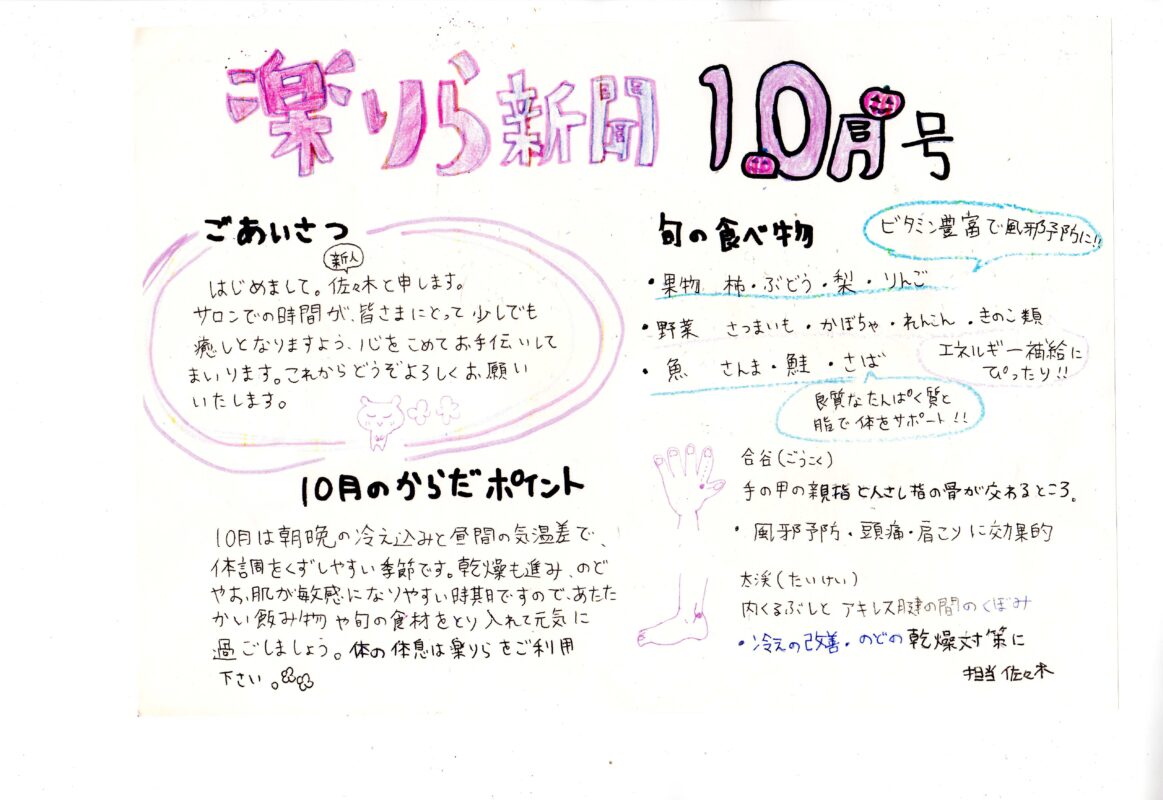 楽りら新聞 10月号
ごあいさつ
新人
はじめまして。佐々木と申します。
サロンでの時間が、皆さまにとって少しでも
癒しとなりますよう、心をこめてお手伝いして
まいります。これからどうぞよろしくお願い
いたします。
10月のからだポイント
10月は朝晩の冷え込みと昼間の気温差で、
体調をくずしやすい季節です。乾燥も進み、のど
やお肌が敏感になりやすい時期ですので、あたた
かい飲み物や旬の食材をとり入れて元気に
過ごしましょう。体の休息は楽りらをご利用
下さい。
旬の食べ物
ビタミン豊富で風邪予防に!!
・果物 柿・ぶどう・梨・りんご
・野菜 さつまいも・かぼちゃ・れんこん・きのこ類
エネルギー補給に
ぴったり!!
・魚 さんま・鮭・さば
良質なたんぱく質と
脂で体をサポート!!
合谷(ごうこく)
手の甲の親指と人さし指の骨が交わるところ。
・風邪予防・頭痛・肩こりに効果的
太渓(たいけい)
内くるぶしとアキレス腱の間のくぼみ
・冷えの改善・のどの乾燥対策に
担当 佐々木